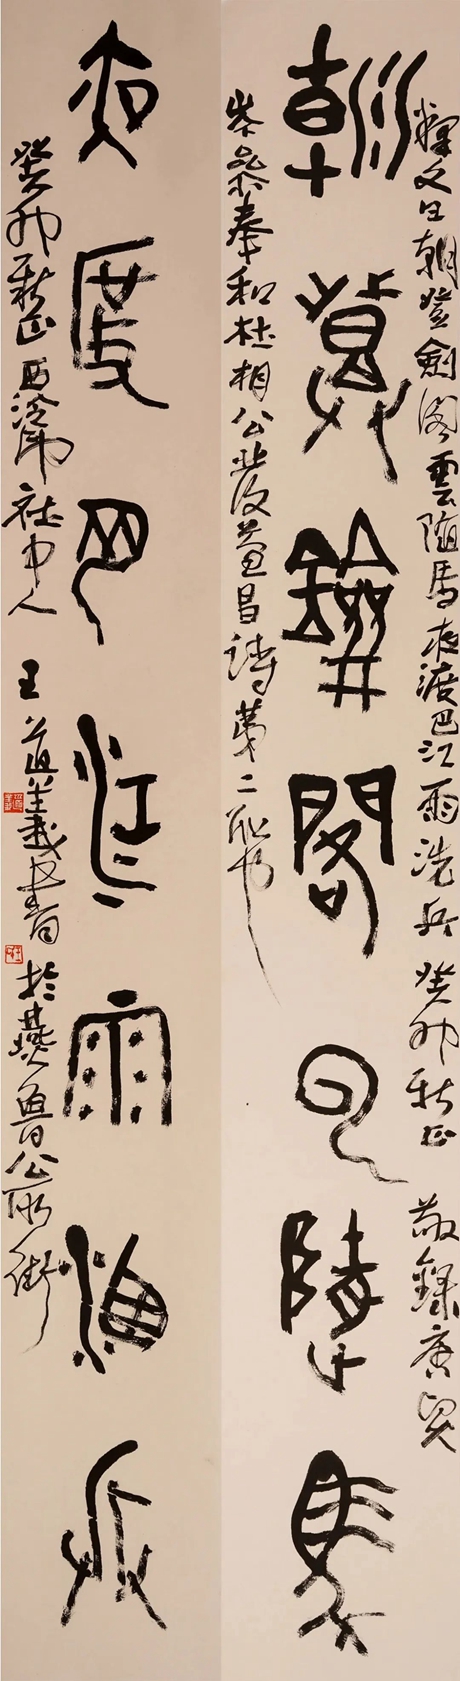 釋文曰朝登劍閣雲隨馬夜渡巴江雨洗兵 癸卯新正 敬錄唐賢
朝登劍閣雲隨馬
岑參奉和杜相公發益昌詩第二聯也
夜渡巴江雨洗兵
癸卯新正西泠印社中人 王道義書於燕魯公所街